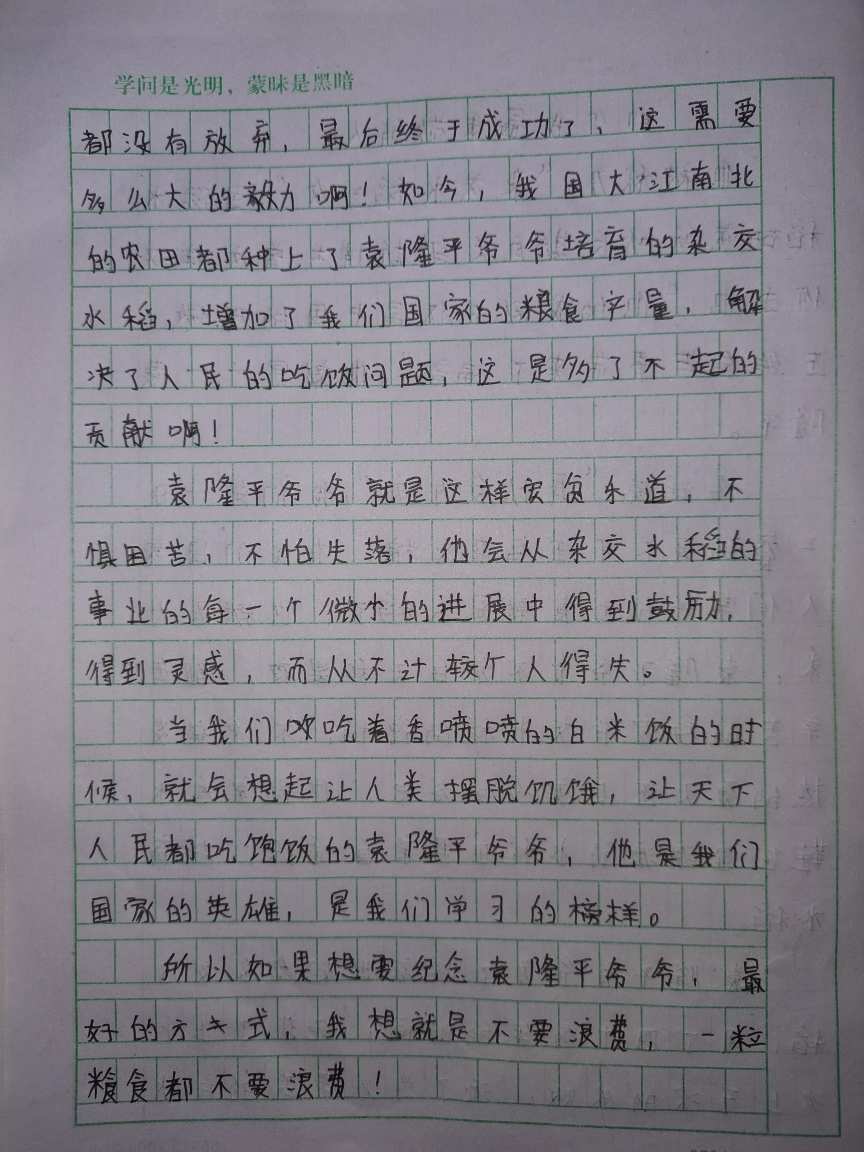 学问是光明，蒙昧是黑暗
都没有放弃，最后终于成功了，这需要
多么大的毅力啊！如今，我国大江南北
的农田都种上了袁隆平爷爷培育的杂交
水稻，增加了我们国家的粮食产量，解
决了人民的吃饭问题，这是多了不起的
贡献啊！
袁隆平爷爷就是这样安贫乐道，不
惧困苦，不怕失落，他会从杂交水稻的
事业的每一个微小的进展中得到鼓励，
得到灵感，而从不计较个人得失。
当我们吹吃着香喷喷的白米饭的时
候，就会想起让人类摆脱饥饿，让天下
人民都吃饱饭的袁隆平爷爷，他是我们
国家的英雄，是我们学习的榜样。
所以如果想要纪念袁隆平爷爷，最
好的方式，我想就是不要浪费，一粒
粮食都不要浪费！